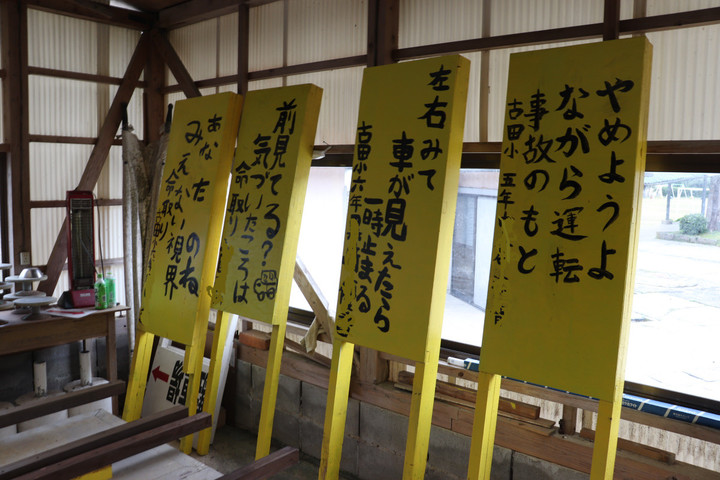 やめようよ
ながら運転
事故のもと
古田小 五年
左右みて
車が見えたら
一時止まる
古田小六年
前見てる?
気づいたころは
命取り
あなたのね
みえない視界
命取り